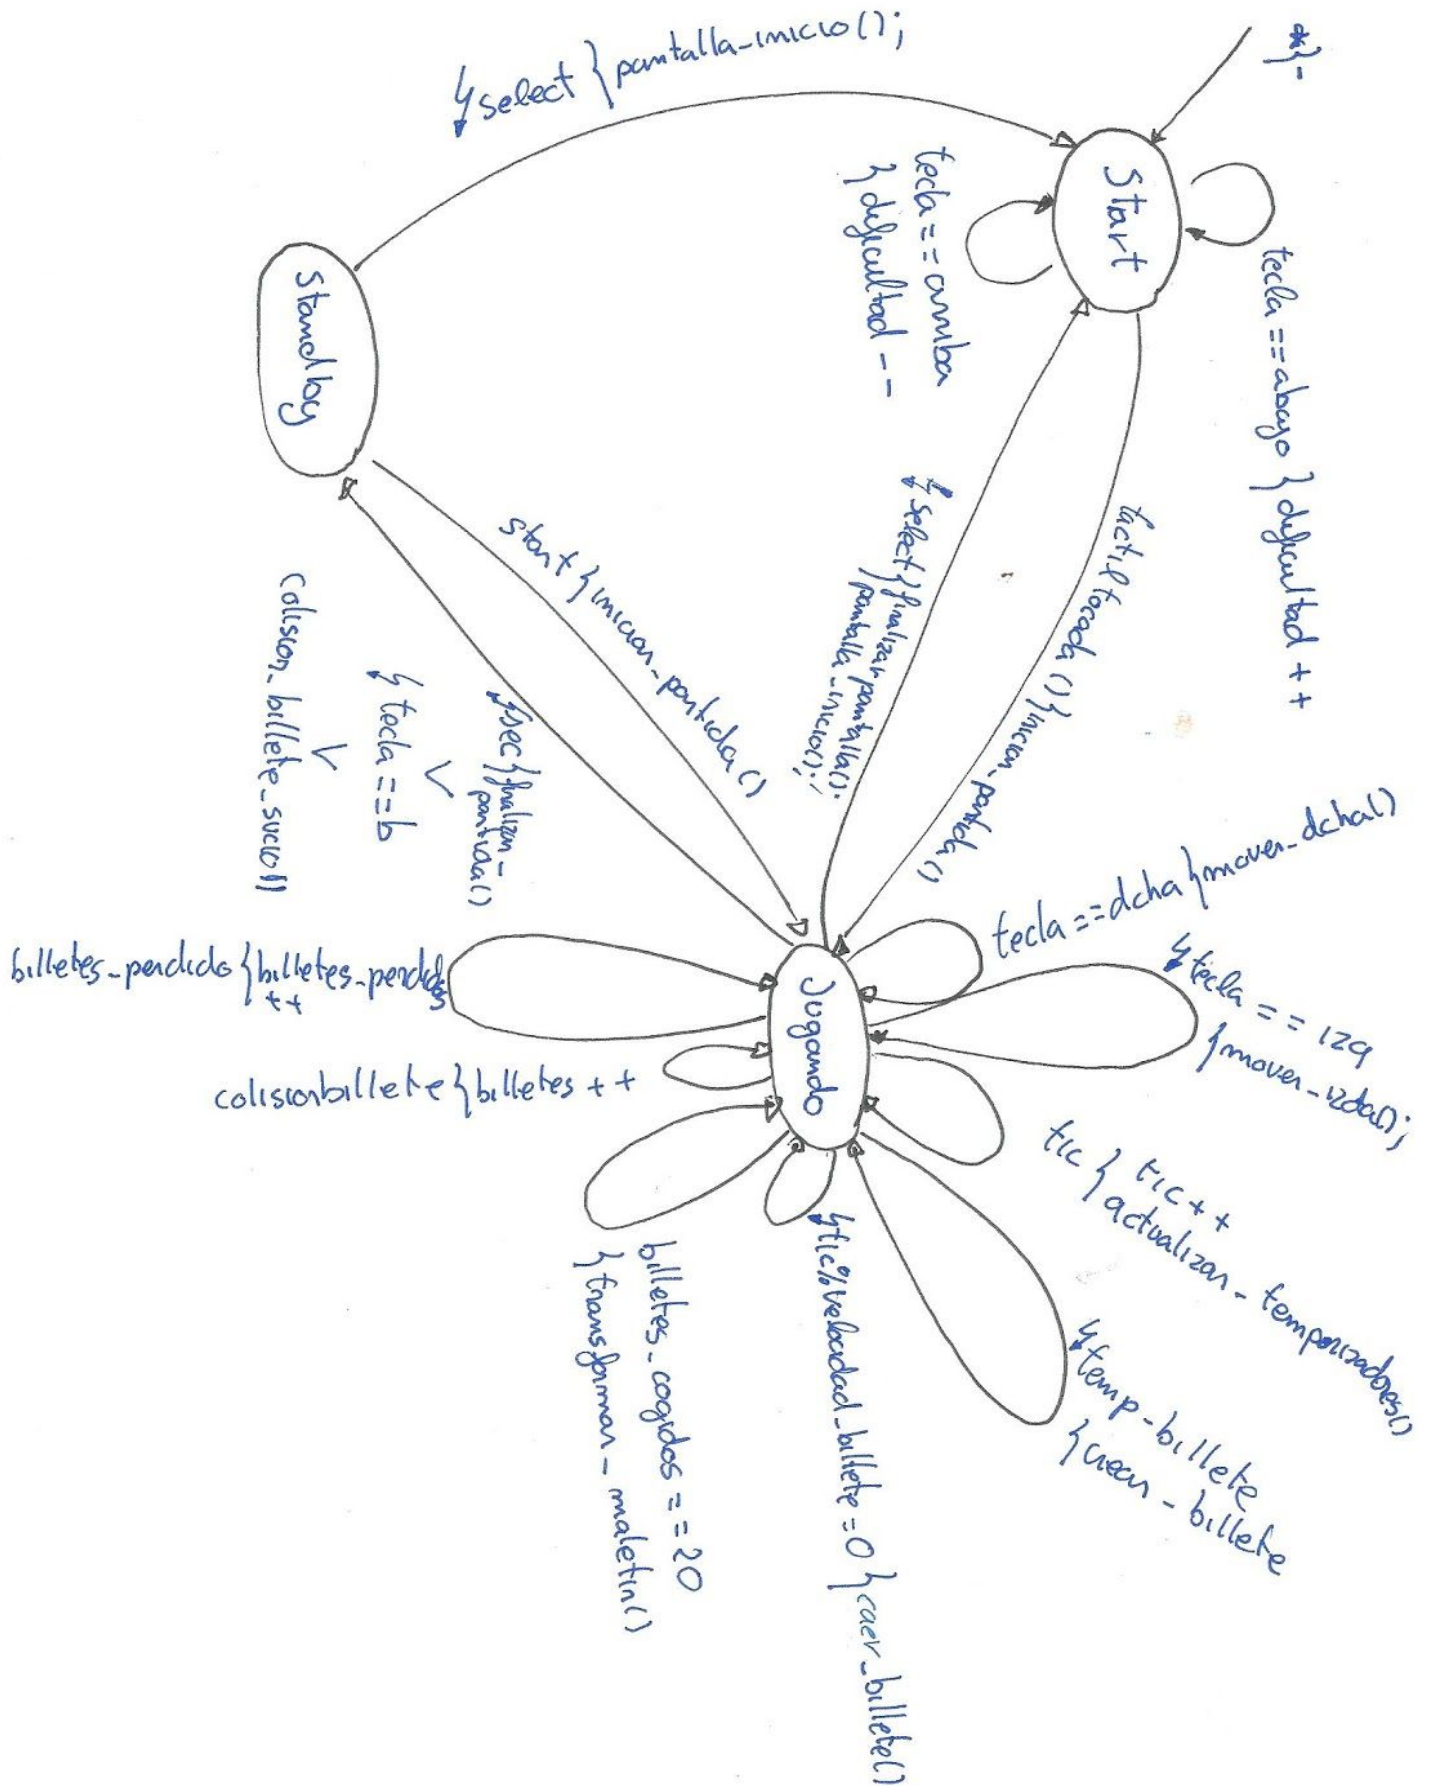 * } -
Start
tecla == abajo } dificultad ++
tecla == arriba
} dificultad --
select } pantalla_inicio();
Standby
start } iniciar_partida()
select } finalizar_pantalla();
pantalla_inicio();
tactil tocada() } iniciar_partida()
sec } finalizar_
partida()
v
tecla == b
v
colision_billete_sucio()
Jugando
tecla == dcha } mover_dcha()
tecla == izq
} mover_izda();
tic } tic++
actualizar_temporizadores()
temp_billete
} crear_billete
tic%velocidad_billete=0 } caer_billete()
billetes_cogidos == 20
} transformar_maletin()
colisionbillete } billetes ++
billetes_perdido } billetes_perdidos
++